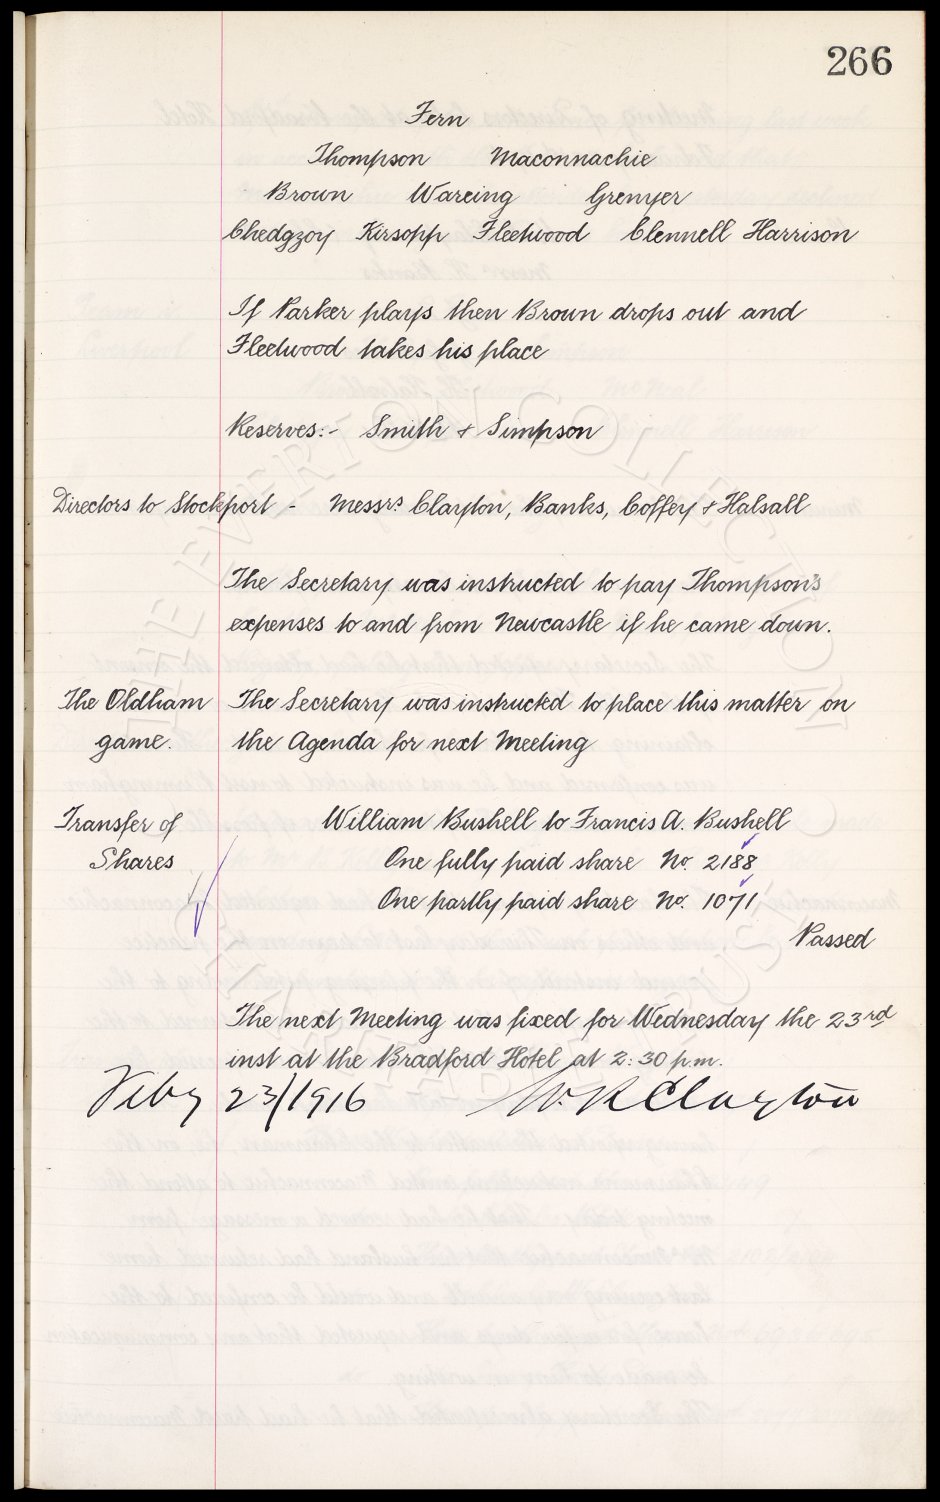 266
Fern
Thompson Maconnachie
Brown Wareing Grenyer
Chedgzoy Kirsopp Fleetwood Clennell Harrison
If Parker plays then Brown drops out and
Fleetwood takes his place
Reserves:- Smith & Simpson
Directors to Stockport - Messrs. Clayton, Banks, Coffey & Halsall
The Secretary was instructed to pay Thompson's
expenses to and from Newcastle if he came down.
The Oldham The Secretary was instructed to place this matter on
game. the Agenda for next Meeting
Transfer of William Bushell to Francis A. Bushell
Shares One fully paid share No. 2188
One partly paid share No. 1071
Passed
The next Meeting was fixed for Wednesday the 23rd
inst at the Bradford Hotel at 2:30 p.m.
Feby 23/1916 W. R Clayton
THE EVERTON COLLECTION
CHARITABLE TRUST